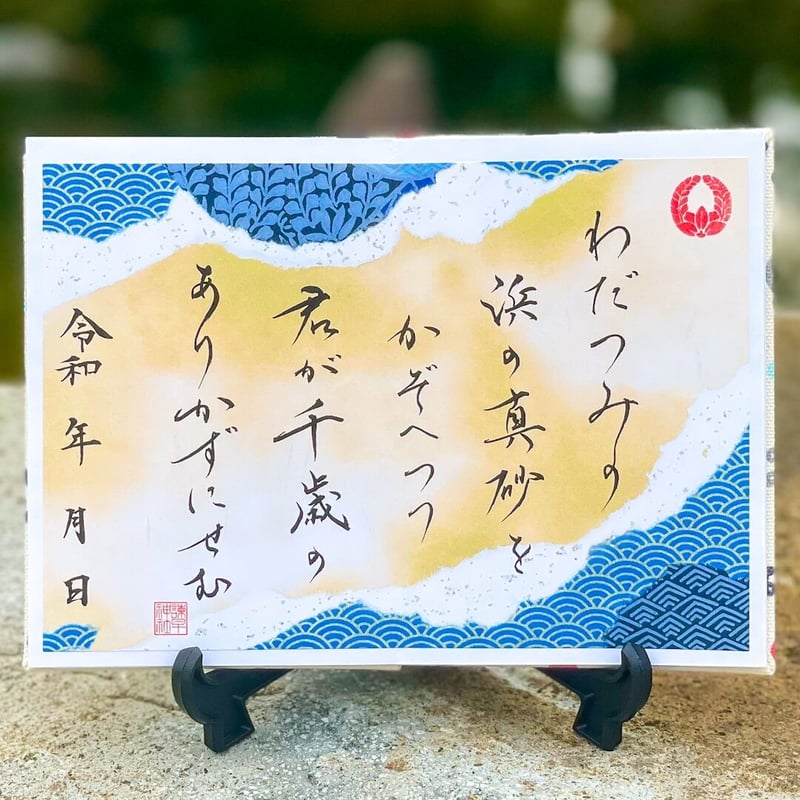 わだつみの
浜の真砂を
かぞへつつ
君が千歳の
ありかずにせむ
令和 年 月 日